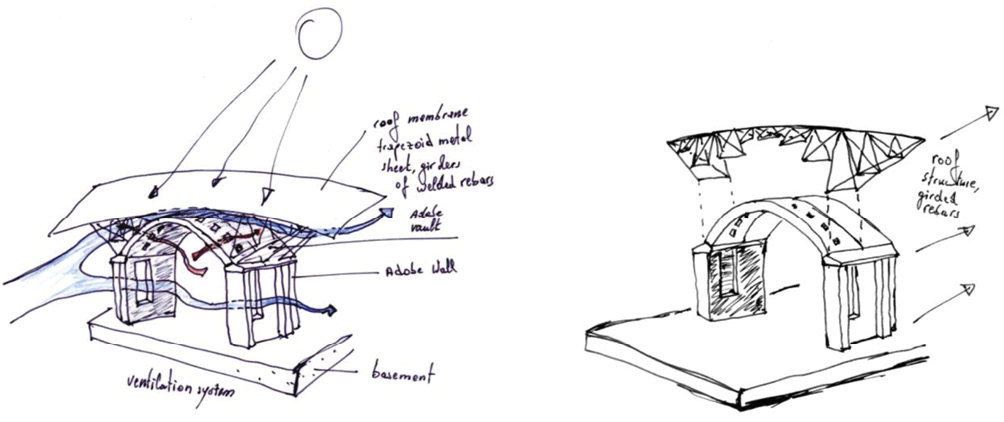 roof membrane
trapezoid metal
sheet, girders
of welded rebars
Adobe
vault
Adobe Wall
basement
ventilation system
roof
structure,
girded
rebars